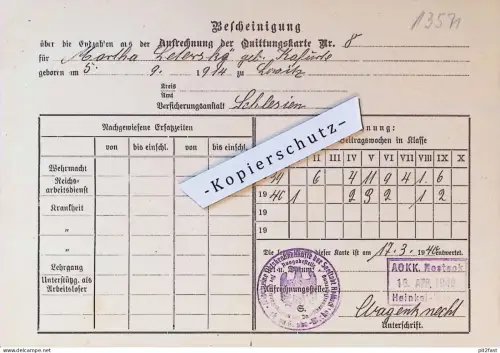 1357
Bescheinigung
über die Endzahlen aus der Aufrechnung der Quittungskarte Nr. 8
für Martha geb.
geboren am 5. 9. 1914 zu
Kreis
Amt
Versicherungsanstalt Schlesien
Nachgewiesene Ersatzzeiten
von bis einschl. von bis einschl.
Wehrmacht
Reichs-
arbeitsdienst
Krankheit
"
"
Lehrgang
Unterstützg. als
Arbeitsloser
-Kopierschutz-
nung:
Beitragswochen in Klasse
II III IV V VI VII VIII IX X
39 6 4 11 9 4 1 6
19 40 1 2 9 2 1 2
19
19
dieser Karte ist am 17. 3. 1940 entwertet.
Ausgabestelle
u. Datum:
Aufrechnungsstelle
AOKK. Rostock
Heinkel
Wagenknecht
Unterschrift.
pit2fast